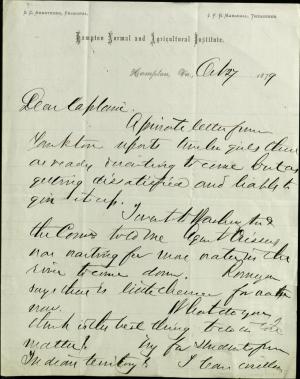 S. C. Armstrong, Principal.
J. F. B. Marshall, Treasurer.
Hampton Normal and Agricultural Institute.
Hampton, Va., Oct 27 1879
Dear Captain.
A private letter from
Yankton reports twelve girls there
as ready & waiting to come but as
getting dissatisfied and liable to
give it up.
I went to
the Com told me Agent
was waiting for more water in the
river to come down.
says there is little chance for water
now. What do you
think is the best thing to do in the
matter? for students from
Indian territory? I have written